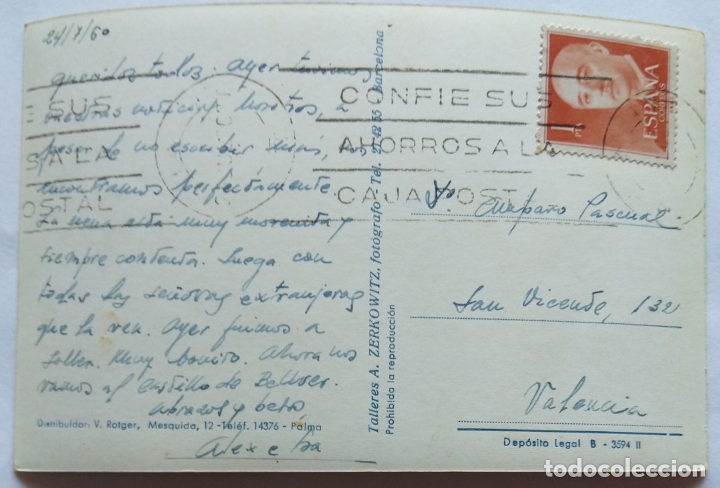 24/7/60
queridos todos. Ayer tuvimos
vuestras noticias. Nosotros, a
pesar de no escribir más, nos
encontramos perfectamente.
La nena está muy morenita y
siempre contenta. Juega con
todas las señoras extranjeras
que la ven. Ayer fuimos a
Soller. Muy bonito. Ahora nos
vamos al Castillo de Bellver.
Abrazos y besos
Alex e
Distribuidor: V. Rotger, Mesquida, 12 - Teléf. 14376 - Palma
Talleres A. ZERKOWITZ, fotógrafo - Tel. 21 42 65 Barcelona
Prohibida la reproducción
E SUS
SALA
OSTAL
CONFIE SUS
AHORROS A LA
CAJA POST
1
PTA
ESPAÑA
CORREOS
Amparo Pascual
San Vicente, 132
Valencia
Depósito Legal B - 3594 II
todocoleccion.net